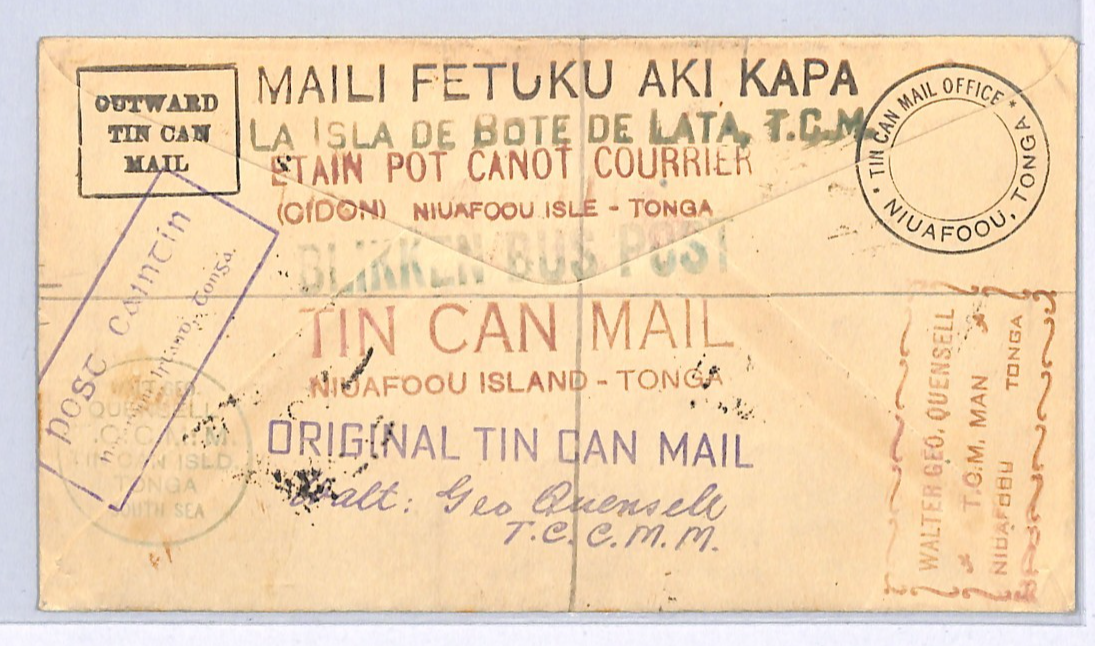 OUTWARD
TIN CAN
MAIL
MAILI FETUKU AKI KAPA
LA ISLA DE BOTE DE LATA, T.C.M.
ETAIN POT CANOT COURRIER
(OIDON) NIUAFOOU ISLE - TONGA
BLIKKEN BUS POST
TIN CAN MAIL
NIUAFOOU ISLAND - TONGA
ORIGINAL TIN CAN MAIL
Walt: Geo Quensell
T.C.C.M.M.
* TIN CAN MAIL OFFICE *
NIUAFOOU, TONGA
post caintin
Tonga.
WALT GEO.
QUENSELL
TIN CAN ISLD.
TONGA
SOUTH SEA
WALTER GEO. QUENSELL
T.C.M. MAN
NIUAFOOU TONGA